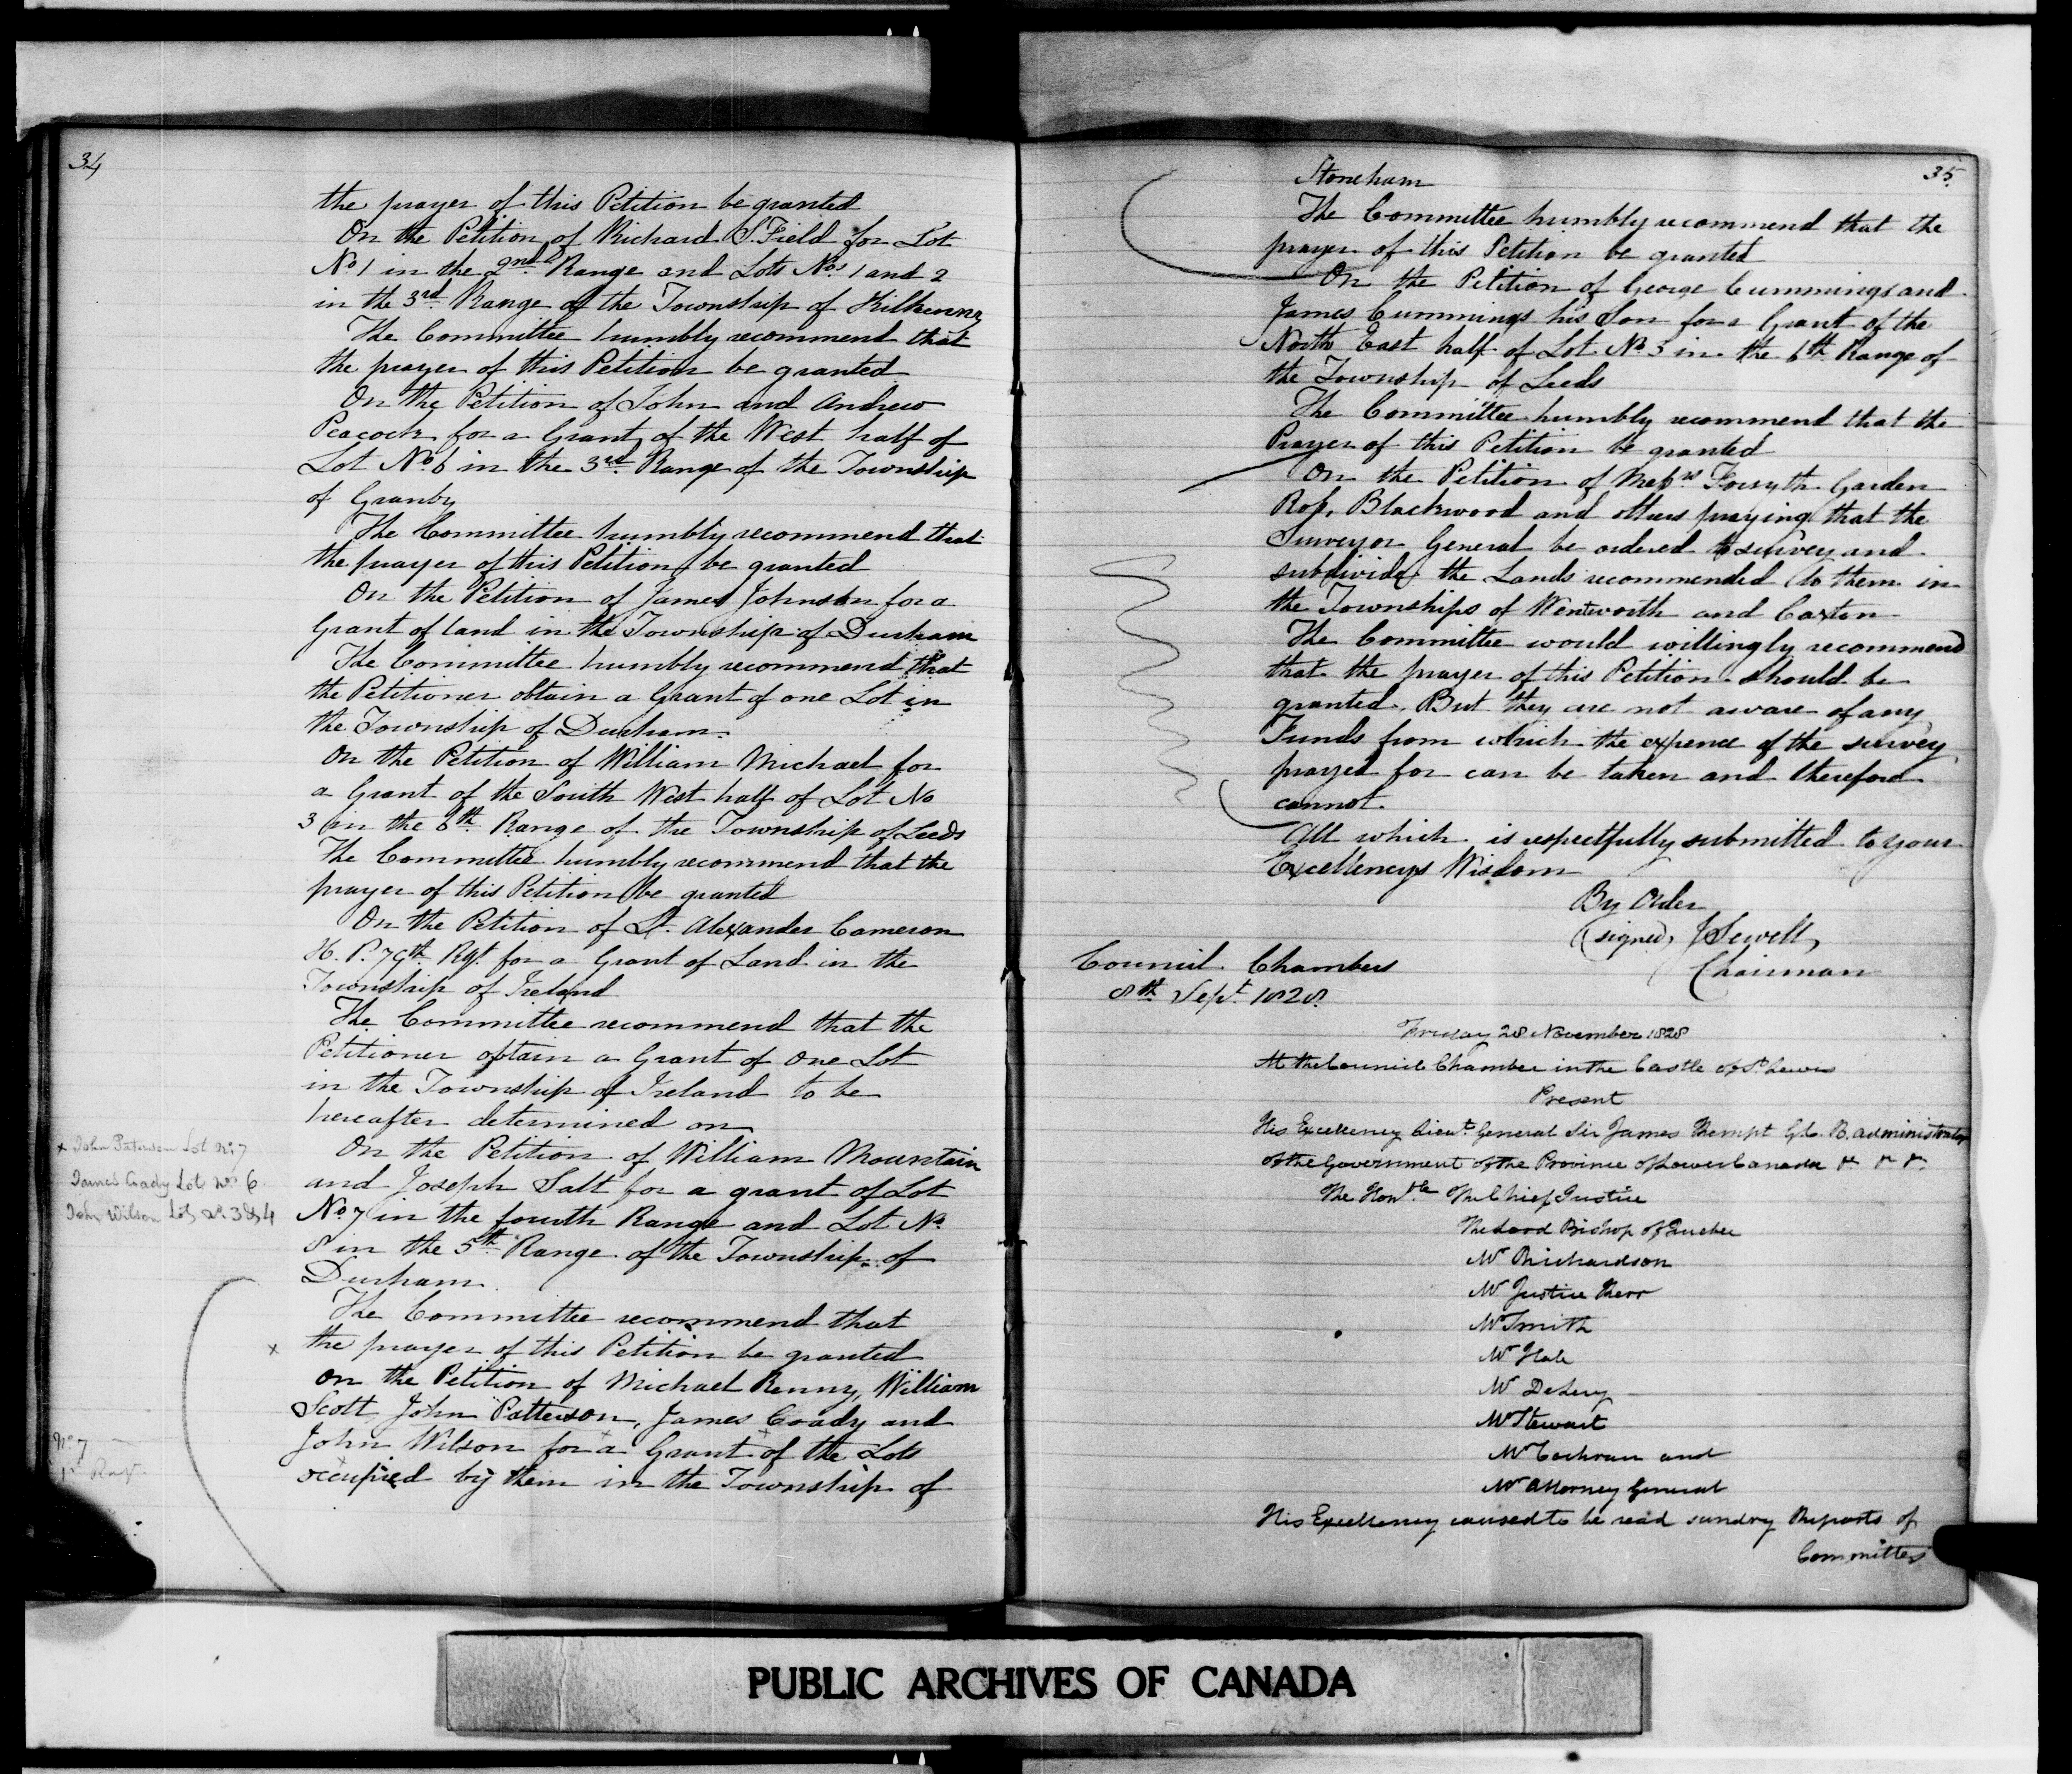 34
the prayer of this Petition be granted
On the Petition of Richard S. Field for Lot
No 1 in the 2nd Range and Lots Nos 1 and 2
in the 3rd Range of the Township of Kilkenny
The Committee humbly recommend that
the prayer of this Petition be granted
On the Petition of John and Andrew
Peacock for a Grant of the West half of
Lot No 6 in the 3rd Range of the Township
of Granby
The Committee humbly recommend that
the prayer of this Petition be granted
On the Petition of James Johnston for a
Grant of land in the Township of Durham
The Committee humbly recommend that
the Petitioner obtain a Grant of one Lot in
the Township of Durham.
On the Petition of William Michael for
a Grant of the South West half of Lot No
3 in the 6th Range of the Township of Leeds
The Committee humbly recommend that the
prayer of this Petition be granted
On the Petition of Lt. Alexander Cameron
H. P. 79th Rgt for a Grant of Land in the
Township of Ireland
The Committee recommend that the
Petitioner obtain a Grant of one Lot
in the Township of Ireland to be
hereafter determined on
On the Petition of William Mountain
and Joseph Salt for a grant of Lot
No 7 in the fourth Range and Lot No
8 in the 5th Range of the Township of
Durham.
The Committee recommend that
x the prayer of this Petition be granted
On the Petition of Michael Kenny, William
Scott John Patterson, James Coady and
John Wilson for a Grant of the Lots
occupied by them in the Township of
x John Paterson Lot No 7
James Coady Lot No 6
John Wilson Lots No 3 & 4
No 7
35
Stoneham
The Committee humbly recommend that the
prayer of this Petition be granted
On the Petition of George Cummings and
James Cummings his Son for a Grant of the
North East half of Lot No 3 in the 6th Range of
the Township of Leeds
The Committee humbly recommend that the
Prayer of this Petition be granted
On the Petition of Messrs Forsyth Garden
Ross, Blackwood and others praying that the
Surveyor General be ordered to survey and
subdivide the Lands recommended to them in
the Townships of Wentworth and Caxton
The Committee would willingly recommend
that the prayer of this Petition should be
granted. But they are not aware of any
Funds from which the expence of the survey
prayed for can be taken and therefore
cannot.
All which is respectfully submitted to your
Excellencys Wisdom
By Order
(signed) J Sewell,
Chairman
Council Chambers
8th Sept 1828.
Friday 28 November 1828
At the Council Chamber in the Castle of St Lewis
Present
His Excellency Lieut. General Sir James Kempt G.C.B. Administrator
of the Government of the Province of Lower Canada &c &c &c
The Honble The Chief Justice
The Lord Bishop of Quebec
Mr Richardson
Mr Justice Kerr
Mr Smith
Mr Hale
Mr DeLery
Mr Stewart
Mr Cochran and
Mr Attorney General
His Excellency caused to be read sundry Reports of
Committees
PUBLIC ARCHIVES OF CANADA